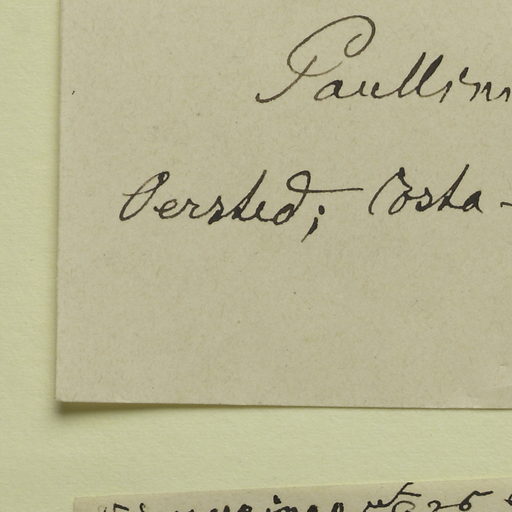 Paullini
Oersted; Costa -